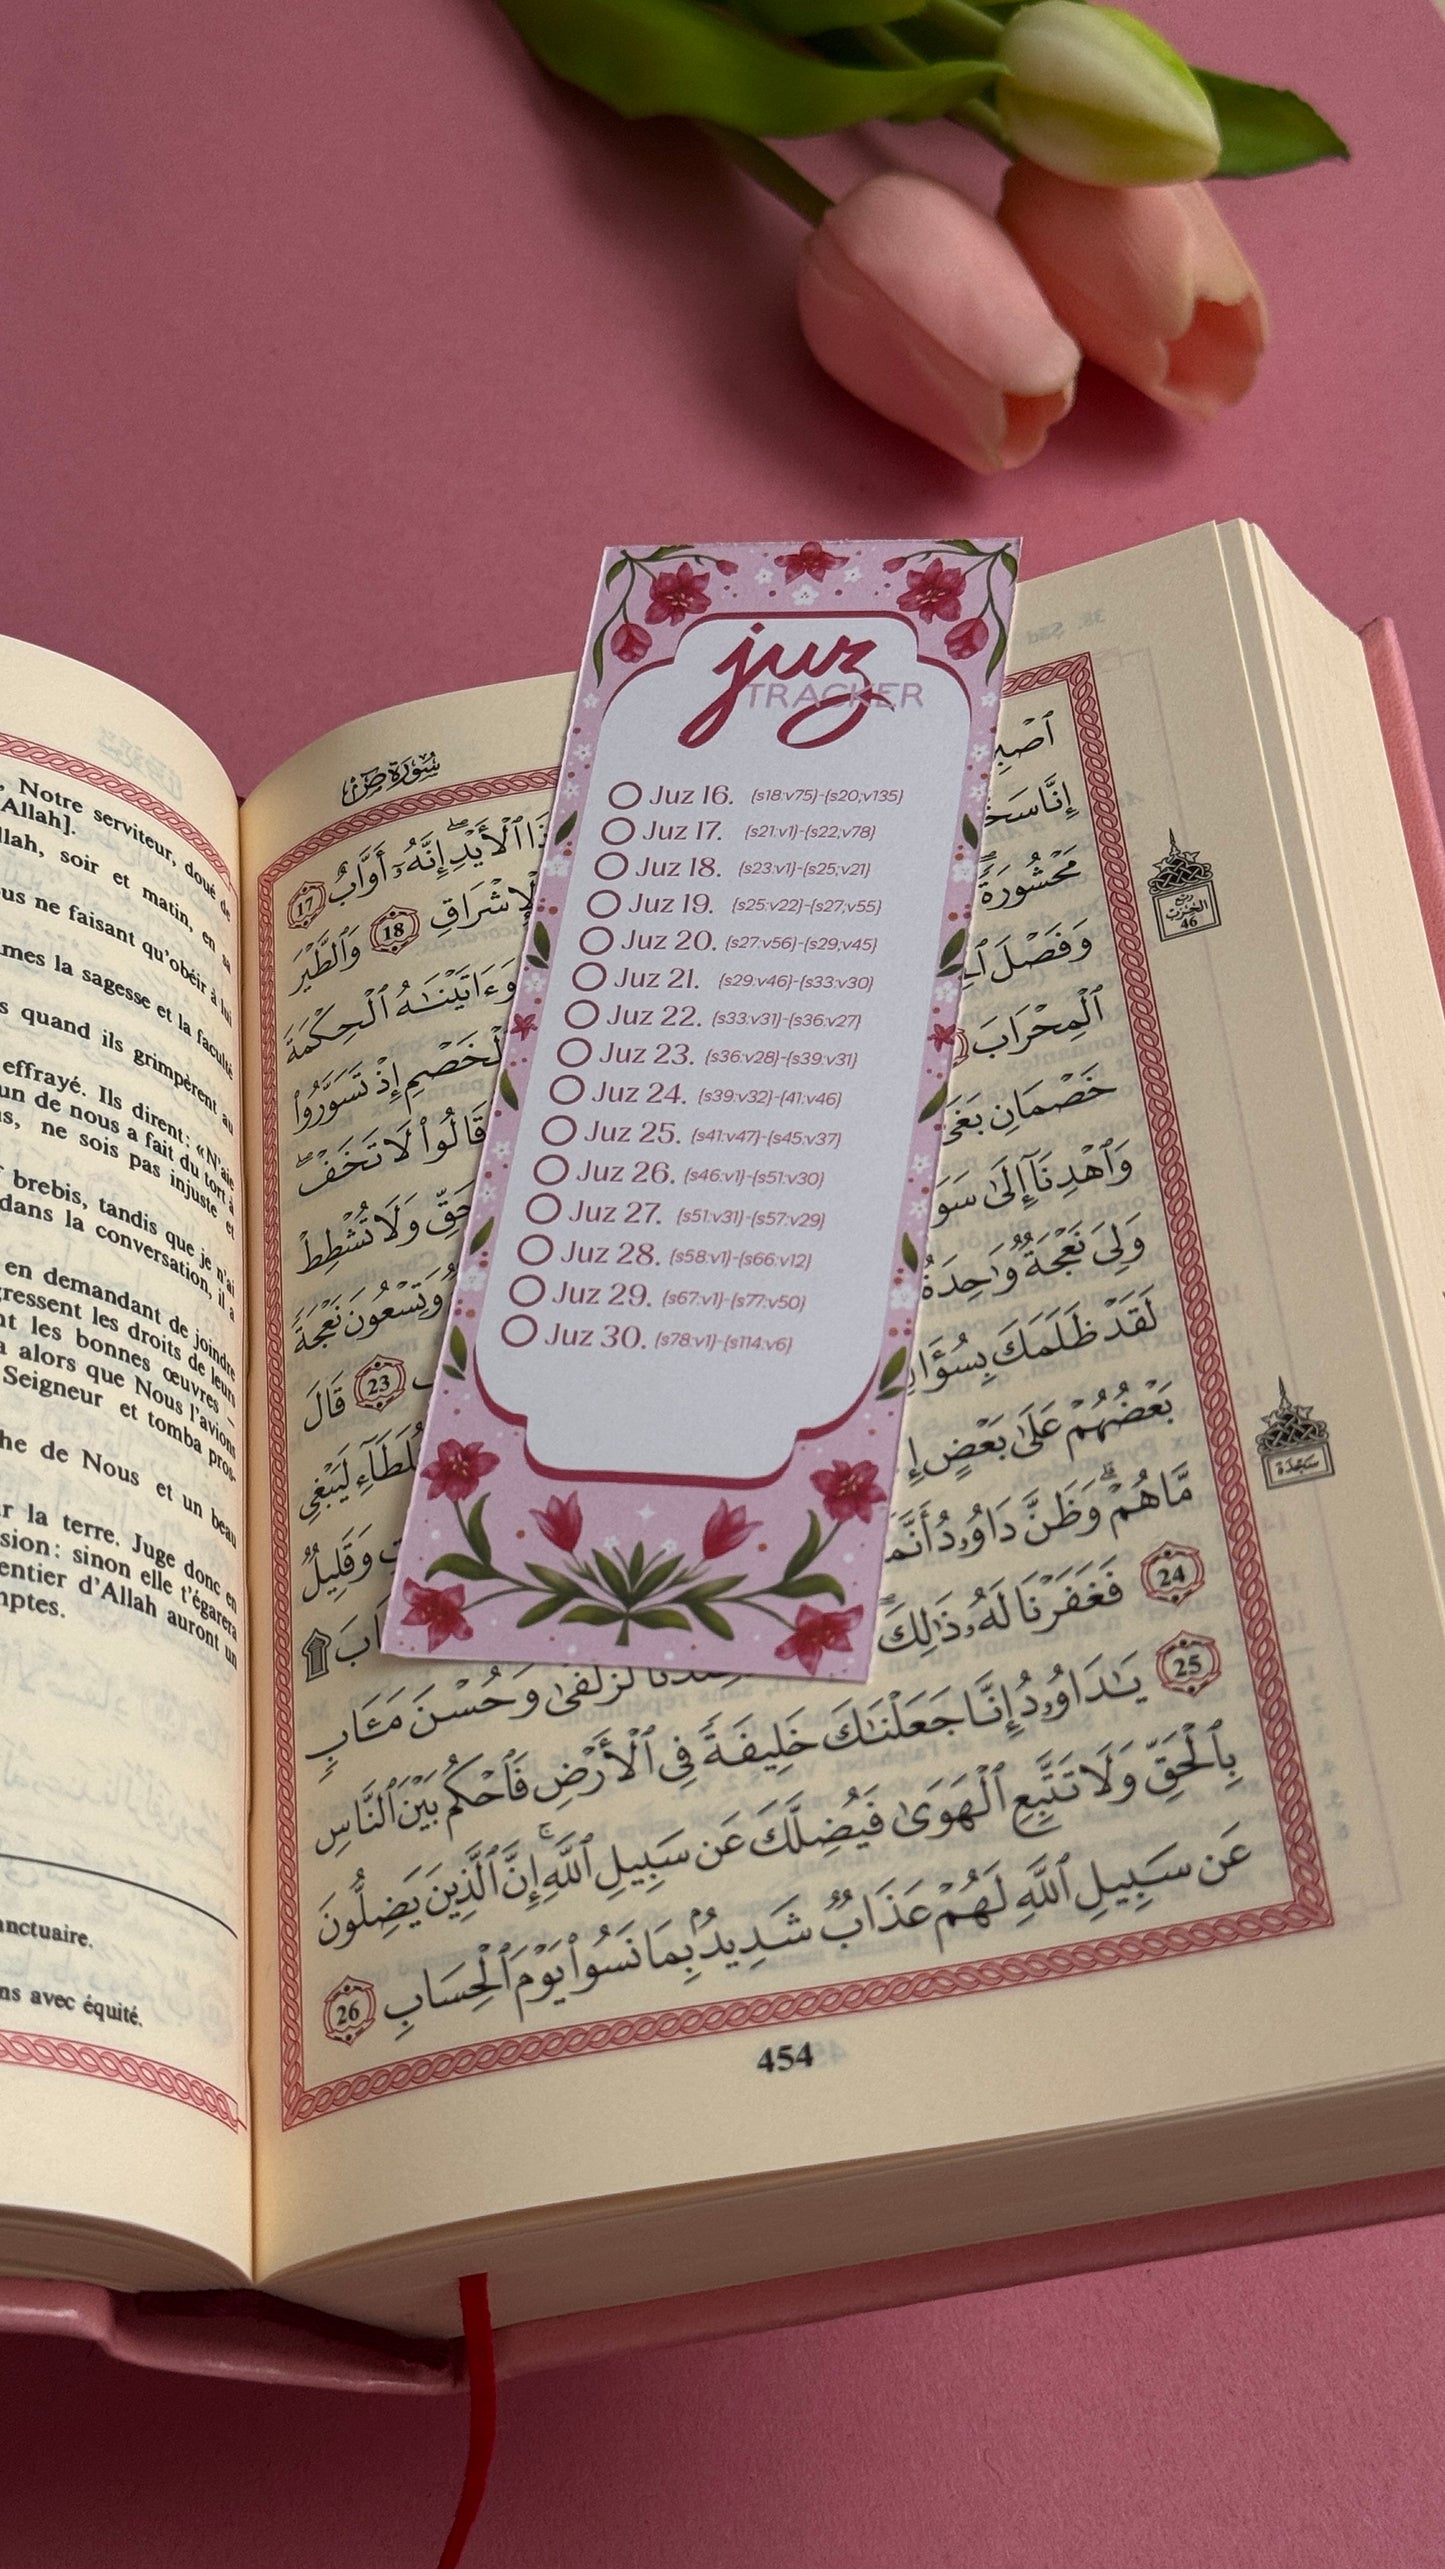 juz
TRACKER
Juz 16. (s18:v75)-(s20;v135)
Juz 17. (s21:v1)-(s22;v78)
Juz 18. (s23:v1)-(s25;v21)
Juz 19. (s25:v22)-(s27;v55)
Juz 20. (s27:v56)-(s29;v45)
Juz 21. (s29:v46)-(s33:v30)
Juz 22. (s33:v31)-(s36:v27)
Juz 23. (s36:v28)-(s39:v31)
Juz 24. (s39:v32)-(41:v46)
Juz 25. (s41:v47)-(s45:v37)
Juz 26. (s46:v1)-(s51:v30)
Juz 27. (s51:v31)-(s57:v29)
Juz 28. (s58:v1)-(s66:v12)
Juz 29. (s67:v1)-(s77:v50)
Juz 30. (s78:v1)-(s114:v6)
, Notre serviteur, doué de
Allah].
llah, soir et matin, en sa
us ne faisant qu'obéir à lui
mes la sagesse et la faculté
s quand ils grimpèrent au
effrayé. Ils dirent: «N'aie
un de nous a fait du tort à
s, ne sois pas injuste et
brebis, tandis que je n'ai
dans la conversation, il a
en demandant de joindre
gressent les droits de leurs
nt les bonnes œuvres –
a alors que Nous l'avions
Seigneur et tomba pros-
he de Nous et un beau
r la terre. Juge donc en
sion: sinon elle t'égarera
entier d'Allah auront un
mptes.
anctuaire.
ns avec équité.
سُورَةُ صٓ
ٱلْأَيْدِ إِنَّهُۥٓ أَوَّابٌ 17
إِنَّا سَخَّ
مَحْشُورَةً
18 وَٱلطَّيْرَ
وَفَصْلَ
وَءَاتَيْنَٰهُ ٱلْحِكْمَةَ
ٱلْمِحْرَابَ
ٱلْخَصْمِ إِذْ تَسَوَّرُوا۟
خَصْمَانِ بَغَىٰ
قَالُوا۟ لَا تَخَفْ
وَٱهْدِنَآ إِلَىٰ سَوَ
وَلَا تُشْطِطْ
وَلِىَ نَعْجَةٌ وَٰحِدَةٌ
وَتِسْعُونَ نَعْجَةً
لَقَدْ ظَلَمَكَ بِسُؤَا
23 قَالَ
بَعْضُهُمْ عَلَىٰ بَعْضٍ
لَيَبْغِى
مَّا هُمْ وَظَنَّ دَاوُۥدُ أَنَّمَ
وَقَلِيلٌ
24 فَغَفَرْنَا لَهُۥ ذَٰلِكَ
لَزُلْفَىٰ وَحُسْنَ مَـَٔابٍ
25 يَٰدَاوُۥدُ إِنَّا جَعَلْنَٰكَ خَلِيفَةً فِى ٱلْأَرْضِ فَٱحْكُم بَيْنَ ٱلنَّاسِ
بِٱلْحَقِّ وَلَا تَتَّبِعِ ٱلْهَوَىٰ فَيُضِلَّكَ عَن سَبِيلِ ٱللَّهِ إِنَّ ٱلَّذِينَ يَضِلُّونَ
عَن سَبِيلِ ٱللَّهِ لَهُمْ عَذَابٌ شَدِيدٌۢ بِمَا نَسُوا۟ يَوْمَ ٱلْحِسَابِ 26
454
رُبع
الحِزْب
46
سَجْدَة